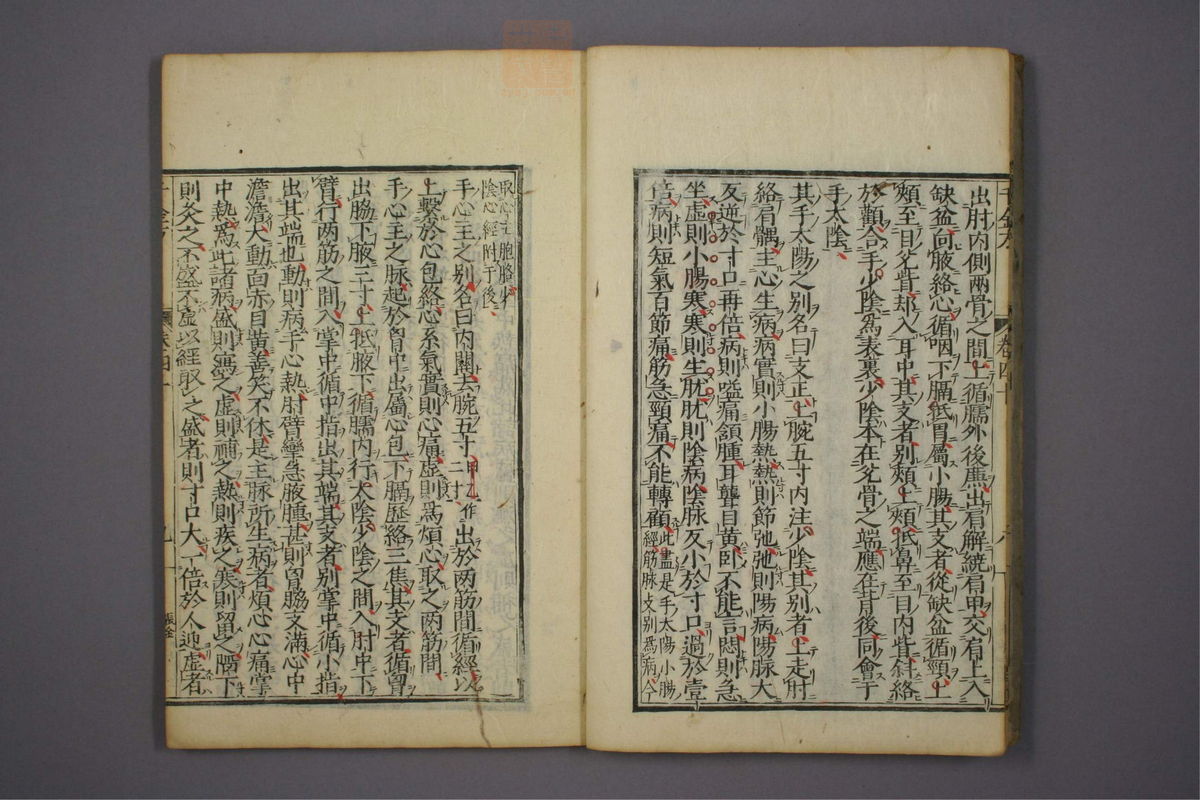 出肘内側兩骨之間上循臑外後廉出肩解繞肩甲交肩上入
缺盆向腋絡心循咽下膈抵胃屬小腸其支者從缺盆循頸上
頰至目兊眥却入耳中其支者別頰上䪼抵鼻至目内眥斜絡
於顴合手少陰爲表裏少陰本在兊骨之端應在背後同會于
手太陰
其手太陽之別名曰支正上腕五寸内注少陰其別者上走肘
絡肩髃主心生病病實則小腸熱熱則節弛弛則陽病陽脉大
反逆於寸口再倍病則嗌痛頷腫耳聾目黄卧不能言悶則急
坐虛則小腸寒寒則生肬肬則陰病陰脉反小於寸口過於壹
倍病則短氣百節痛筋急頸痛不能轉顧此盡是手太陽小腸
經筋脉支別爲病今
取心主胞胳少
陰心經附于後
手心主之別名曰内關去腕五寸二寸甲乙作出於兩筋間循經以
上繫於心包絡心系氣實則心痛虛則爲煩心取之兩筋間
手心主之脉起於胷中出屬心包下膈歷絡三焦其支者循胷
出脇下腋三寸上抵腋下循臑内行太陰少陰之間入肘中下
臂行兩筋之間入掌中循中指出其端其支者別掌中循小指
出其端也動則病手心熱肘臂攣急腋腫甚則胷脇支滿心中
澹澹大動面赤目黄善笑不休是主脉所生病者煩心心痛掌
中熱爲此諸病盛則瀉之虛則補之熱則疾之寒則留之陷下
則灸之不盛不虛以經取之盛者則寸口大一倍於人迎虛者